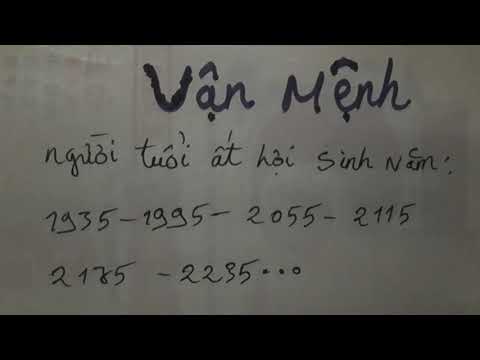 Vận Mệnh
người tuổi ất hợi sinh năm:
1935 - 1995 - 2055 - 2115
2175 - 2235...